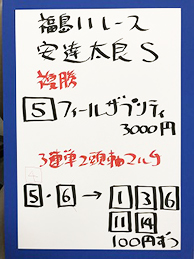 福島11レース
安達太良S
複勝
5 フィールザプリティ
3000円
3連単2頭軸マルチ
5・6→1 3 6
11 14
100円ずつ